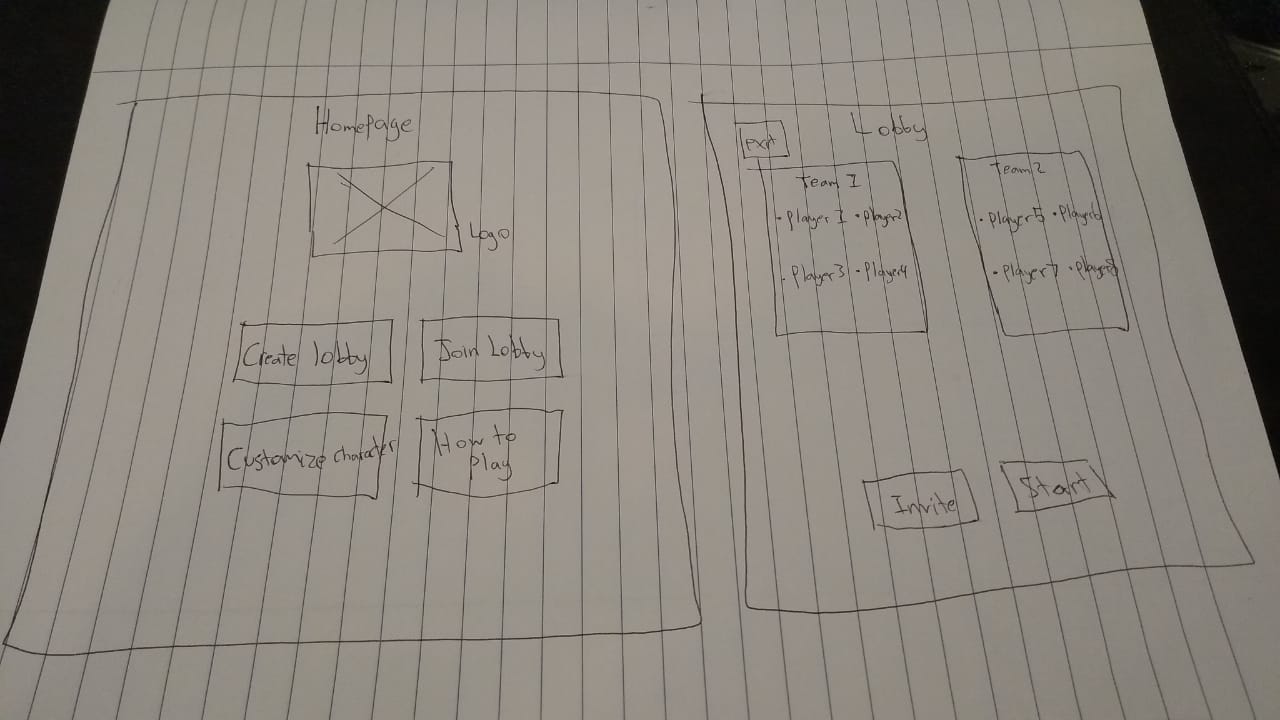 Homepage
Logo
Create lobby
Join Lobby
Customize charater
How to
Play
Lobby
exit
Team 1
• Player 1 • Player2
• Player3 • Player4
Team 2
• Player5 • Player6
• Player7 • Player8
Invite
Start